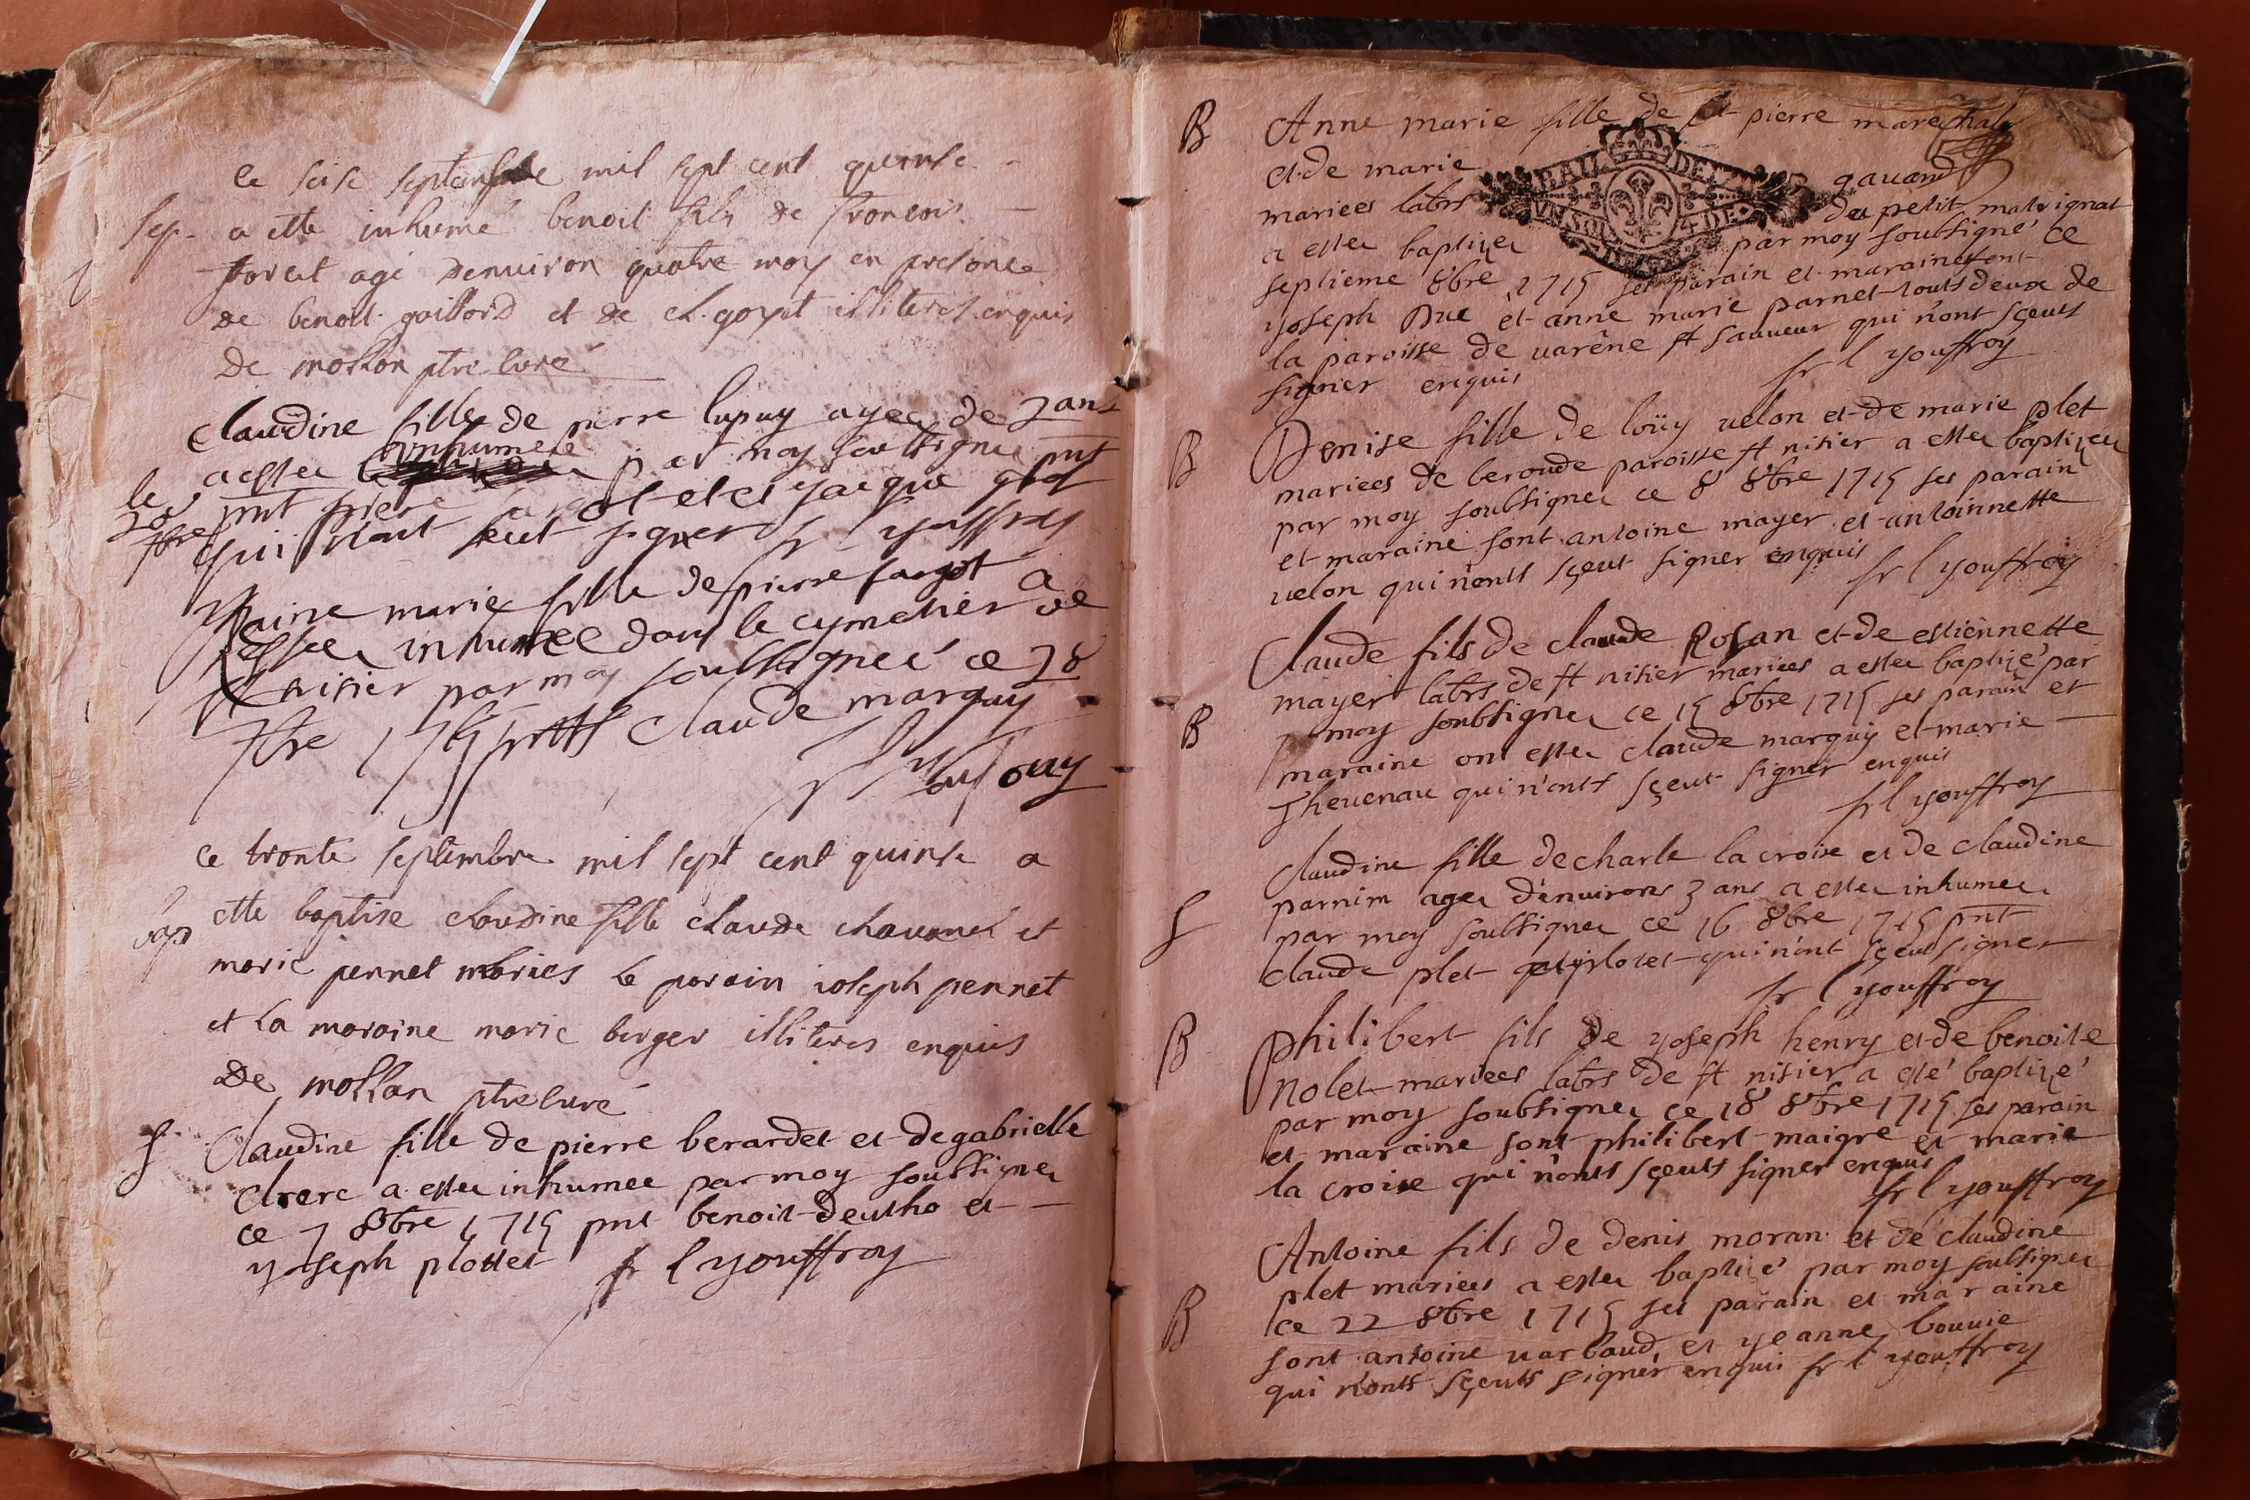 ce seise septembre mil sept cent quinse
sep. a este inhumé benoit fils de francois
forest agé denuiron quatre moy en presence
de benoit gaillard et de cl. goyet illiteres enquis
de mollan ptre curé
claudine fille de pierre lupuy agee de 3 ans
a estee inhumee par moy soubsignee pnt
le 20 7bre
pnt pierre et et yacque
qui n'ont sceut signer fr l youffroy
marie fille de pierre fargot a
estee inhumee dans le cymetier de
st nisier par moy soubsigneé ce 28
7bre 1715 pntts claude marquy
fr l youffroy
ce trente septembre mil sept cent quinse a
bap
este baptise claudine fille claude chauanel et
marie pennet maries le parain ioseph pennet
et la maraine marie berger illiteres enquis
de mollan ptre curé
S
Claudine fille de pierre berardet et de gabrielle
clrerc a estee inhumee par moy soubsignee
ce 7 8bre 1715 pnt benoit deutho et
yoseph plottet fr l youffroy
B
Anne marie fille de pierre marechal
et de marie gauand
mariees labrs du petit maluignat
BAIL DE
UN SOL 4 DE
a estee baptizee par moy soubsigné ce
septieme 8bre 1715 ses parain et maraine sont
yoseph Duc et anne marie parnet touts deux de
la paroisse de uarêne st sauueur qui n'ont sçeuts
signer enquis fr l youffroy
B
Denise fille de loüy uelon et de marie plet
mariees de beroude paroisse st nisier a estee baptizee
par moy soubsignee ce 8 8bre 1715 ses parain
et maraine sont antoine mayer et antoinnette
uelon qui n'onts sçeut signer enquis fr l youffroy
Claude fils de claude Rosan et de estiennette
mayer labrs de st nisier mariees a estee baptizé par
B
moy soubsignee ce 15 8bre 1715 ses parain et
maraine ont estee claude marquy et marie
Theuenau qui n'onts sçeut signer enquis
fr l youffroy
Claudine fille de charle la croix et de claudine
parnim agee d'enuirons 3 ans a estee inhumee
S
par moy soubsignee ce 16 8bre 1715 pnt
claude plet qui n'ont sçeut signer
fr l youffroy
B
Philibert fils de yoseph henry et de benoite
nolet mariees labrs de st nisier a esté baptizé
par moy soubsignee ce 18 8bre 1715 ses parain
et maraine sont philibert maigre et marie
la croixe qui n'onts sçeuts signer enquis
fr l youffroy
Antoine fils de denis moran et de claudine
plet mariees a estee baptizé par moy soubsignee
B
ce 22 8bre 1715 ses parain et maraine
sont antoine uarbaud et yeanne bouuie
qui n'onts sçeuts signer enquis fr l youffroy